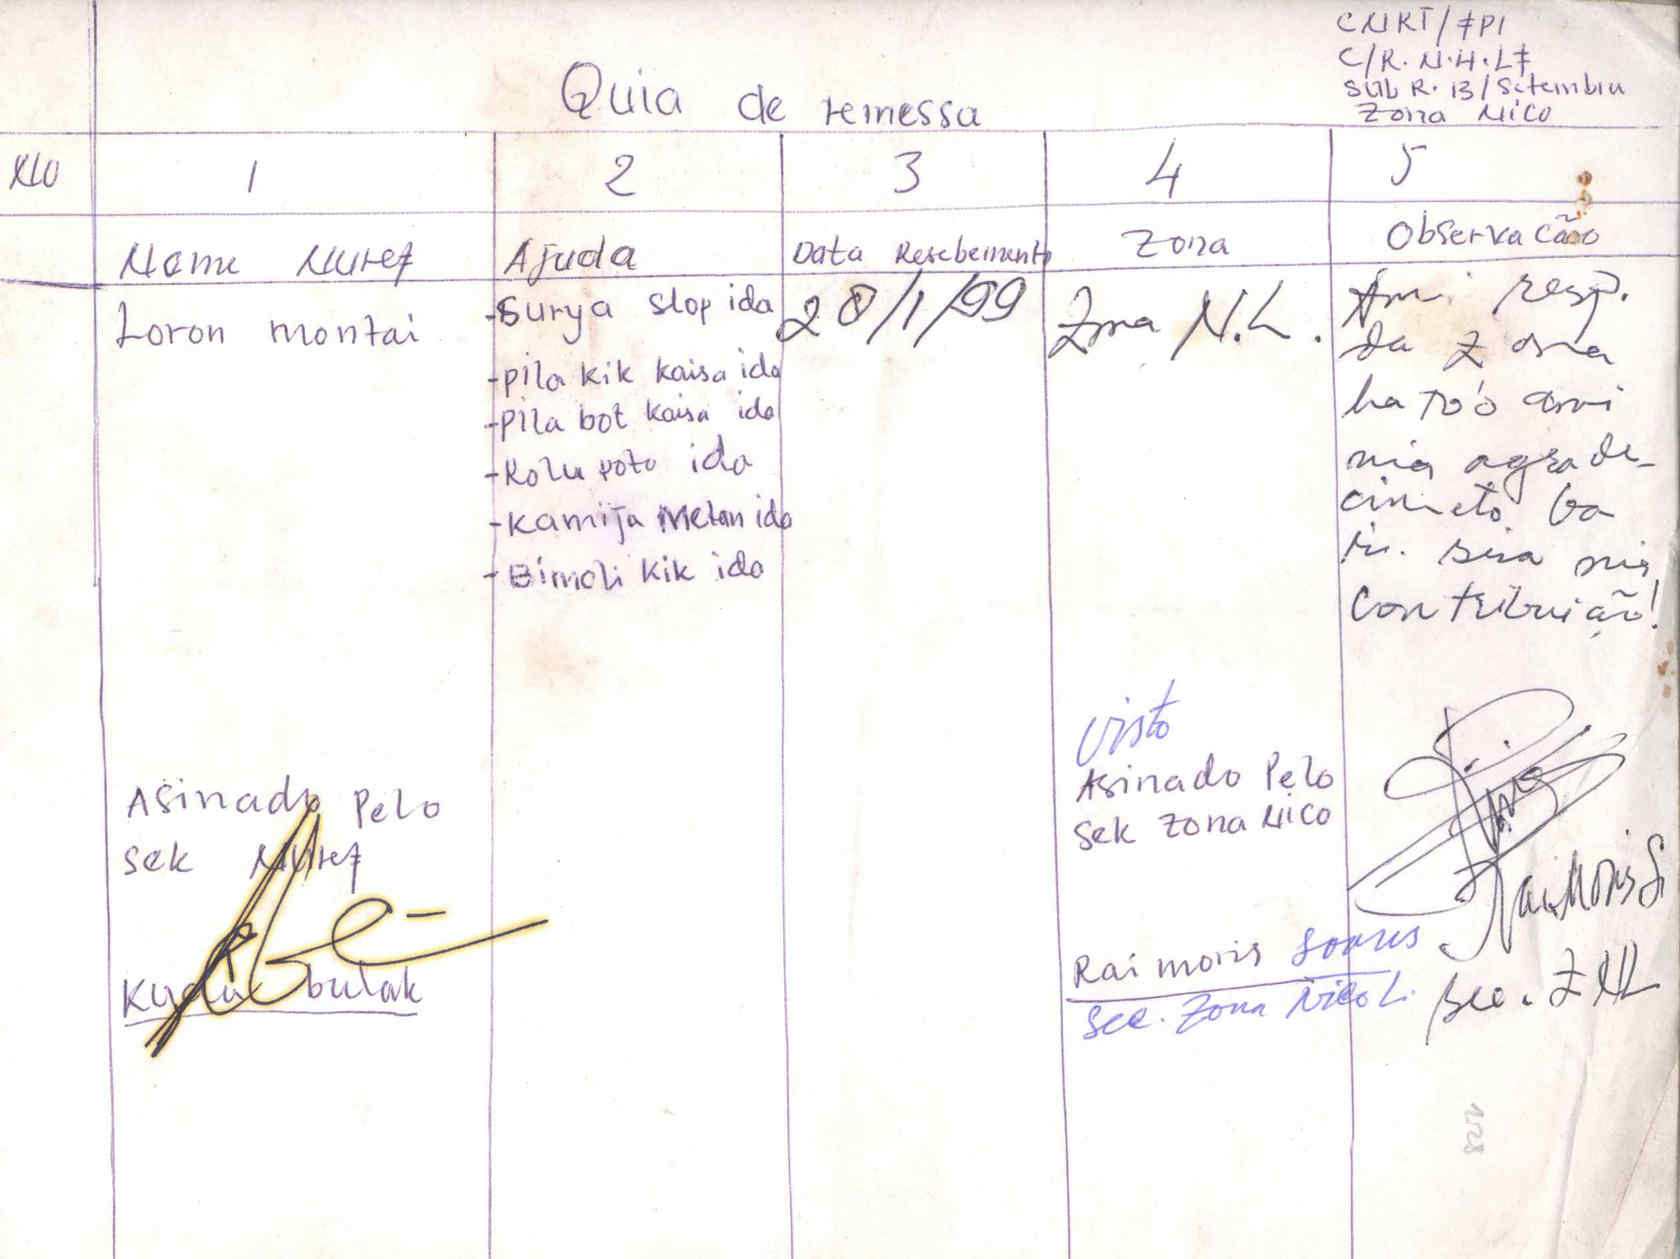 CNRT/FPI
C/R. N.H.LF
Sub R. 13/Setembru
Zona Nico
Quia de remessa
No
1
2
3
4
5
Nome Nuref
Ajuda
Data Resebemento
Zona
Observacão
Loron montai
-Surya slop ida
-pila kik kaisa ida
-pila bot kaisa ida
-Kolu poto ida
-Kamija Metan ida
-Bimoli kik ida
28/1/99
Zona N.L.
Ami resp.
da Zona
hato'o ami
nia agrade-
cimeto ba
ir. sira nia
Contribuição!
Asinado Pelo
sek Nuref
bulak
Visto
Asinado Pelo
Sek Zona Nico
Raimoris Soares
Sec. Zona Nicol.
Raimoris S
Sec. ZNL
1228